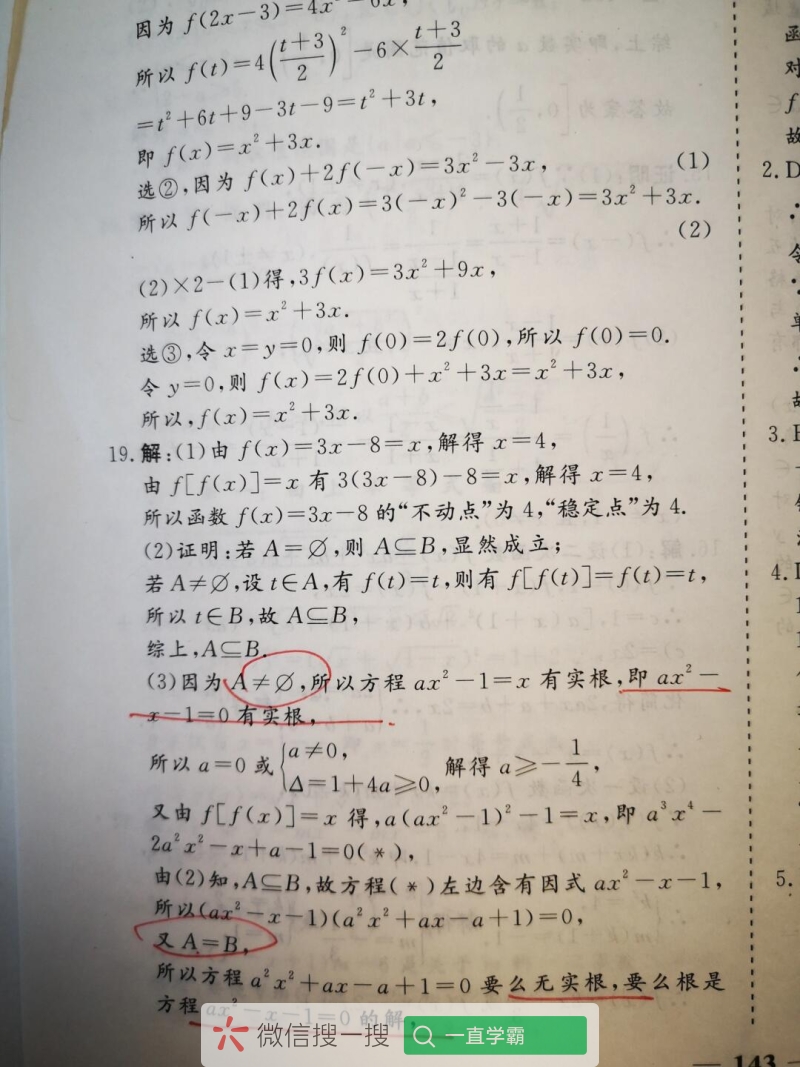 因为 f(2x－3)＝4x²－6x,
所以 f(t)＝4((t＋3)/2)²－6×(t＋3)/2
＝t²＋6t＋9－3t－9＝t²＋3t,
即 f(x)＝x²＋3x.
选②,因为 f(x)＋2f(－x)＝3x²－3x, (1)
所以 f(－x)＋2f(x)＝3(－x)²－3(－x)＝3x²＋3x.
(2)
(2)×2－(1)得,3f(x)＝3x²＋9x,
所以 f(x)＝x²＋3x.
选③,令 x＝y＝0,则 f(0)＝2f(0),所以 f(0)＝0.
令 y＝0,则 f(x)＝2f(0)＋x²＋3x＝x²＋3x,
所以,f(x)＝x²＋3x.
19.解:(1)由 f(x)＝3x－8＝x,解得 x＝4,
由 f[f(x)]＝x 有 3(3x－8)－8＝x,解得 x＝4,
所以函数 f(x)＝3x－8 的“不动点”为 4,“稳定点”为 4.
(2)证明:若 A＝∅,则 A⊆B,显然成立;
若 A≠∅,设 t∈A,有 f(t)＝t,则有 f[f(t)]＝f(t)＝t,
所以 t∈B,故 A⊆B,
综上,A⊆B.
(3)因为 A≠∅,所以方程 ax²－1＝x 有实根,即 ax²－
x－1＝0 有实根,
所以 a＝0 或 {a≠0, Δ＝1＋4a⩾0, 解得 a⩾－1/4,
又由 f[f(x)]＝x 得,a(ax²－1)²－1＝x,即 a³x⁴－
2a²x²－x＋a－1＝0(*),
由(2)知,A⊆B,故方程(*)左边含有因式 ax²－x－1,
所以(ax²－x－1)(a²x²＋ax－a＋1)＝0,
又 A＝B,
所以方程 a²x²＋ax－a＋1＝0 要么无实根,要么根是
方程 ax²－x－1＝0 的解,
微信搜一搜 一直学霸
143
函
对
f
故
2.D
∴
令
∵
单
∴
故
3.
4.
5.